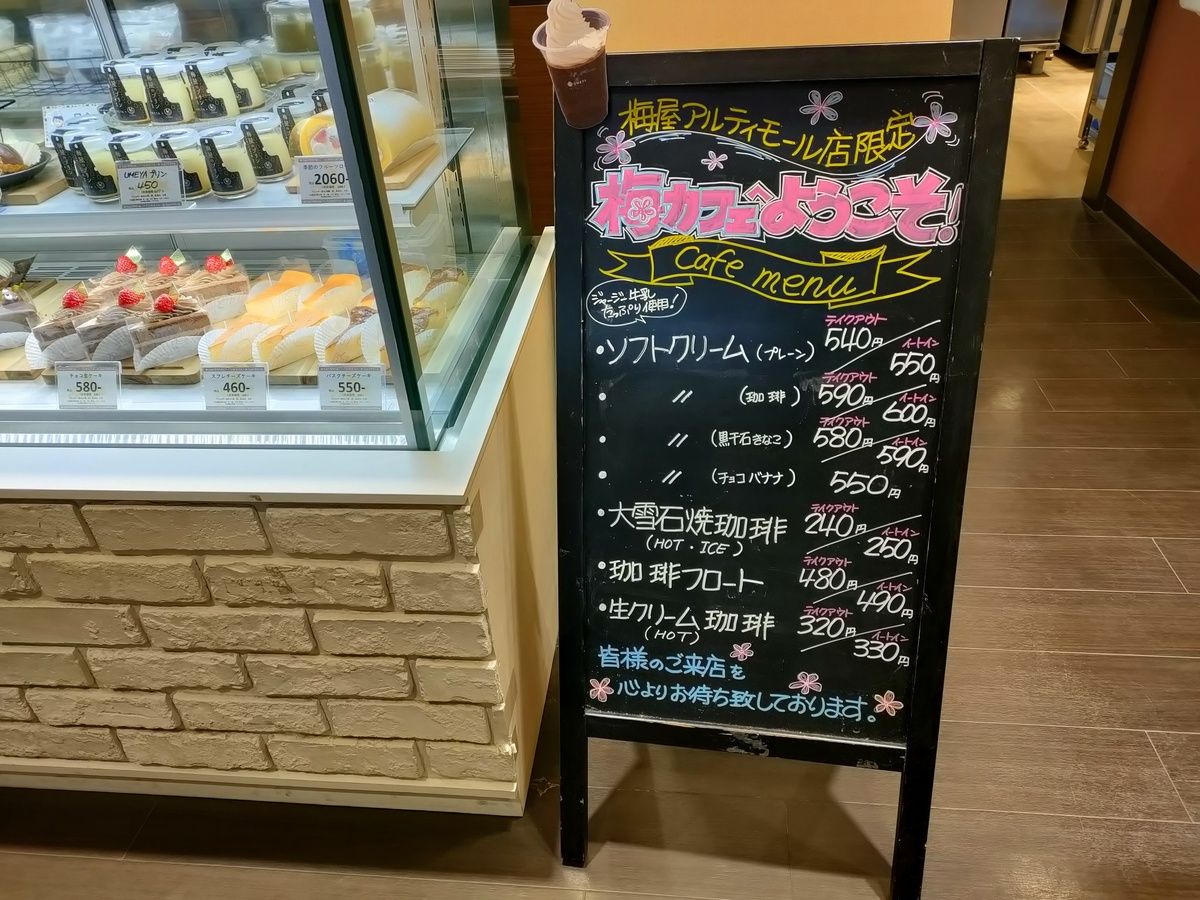 UMEYAプリン
450-
2060-
チョコ生ケーキ
580-
スフレチーズケーキ
460-
バスクチーズケーキ
550-
梅屋アルティモール店限定
梅カフェへようこそ!
Cafe menu
ジャージー牛乳
たっぷり使用!
・ソフトクリーム(プレーン) テイクアウト540円/イートイン550円
・〃(珈琲) テイクアウト590円/イートイン600円
・〃(黒千石きなこ) テイクアウト580円/イートイン590円
・〃(チョコバナナ) 550円
・大雪石焼珈琲 テイクアウト240円/イートイン250円
(HOT・ICE)
・珈琲フロート テイクアウト480円/イートイン490円
・生クリーム珈琲 テイクアウト320円/イートイン330円
(HOT)
皆様のご来店を
心よりお待ち致しております。